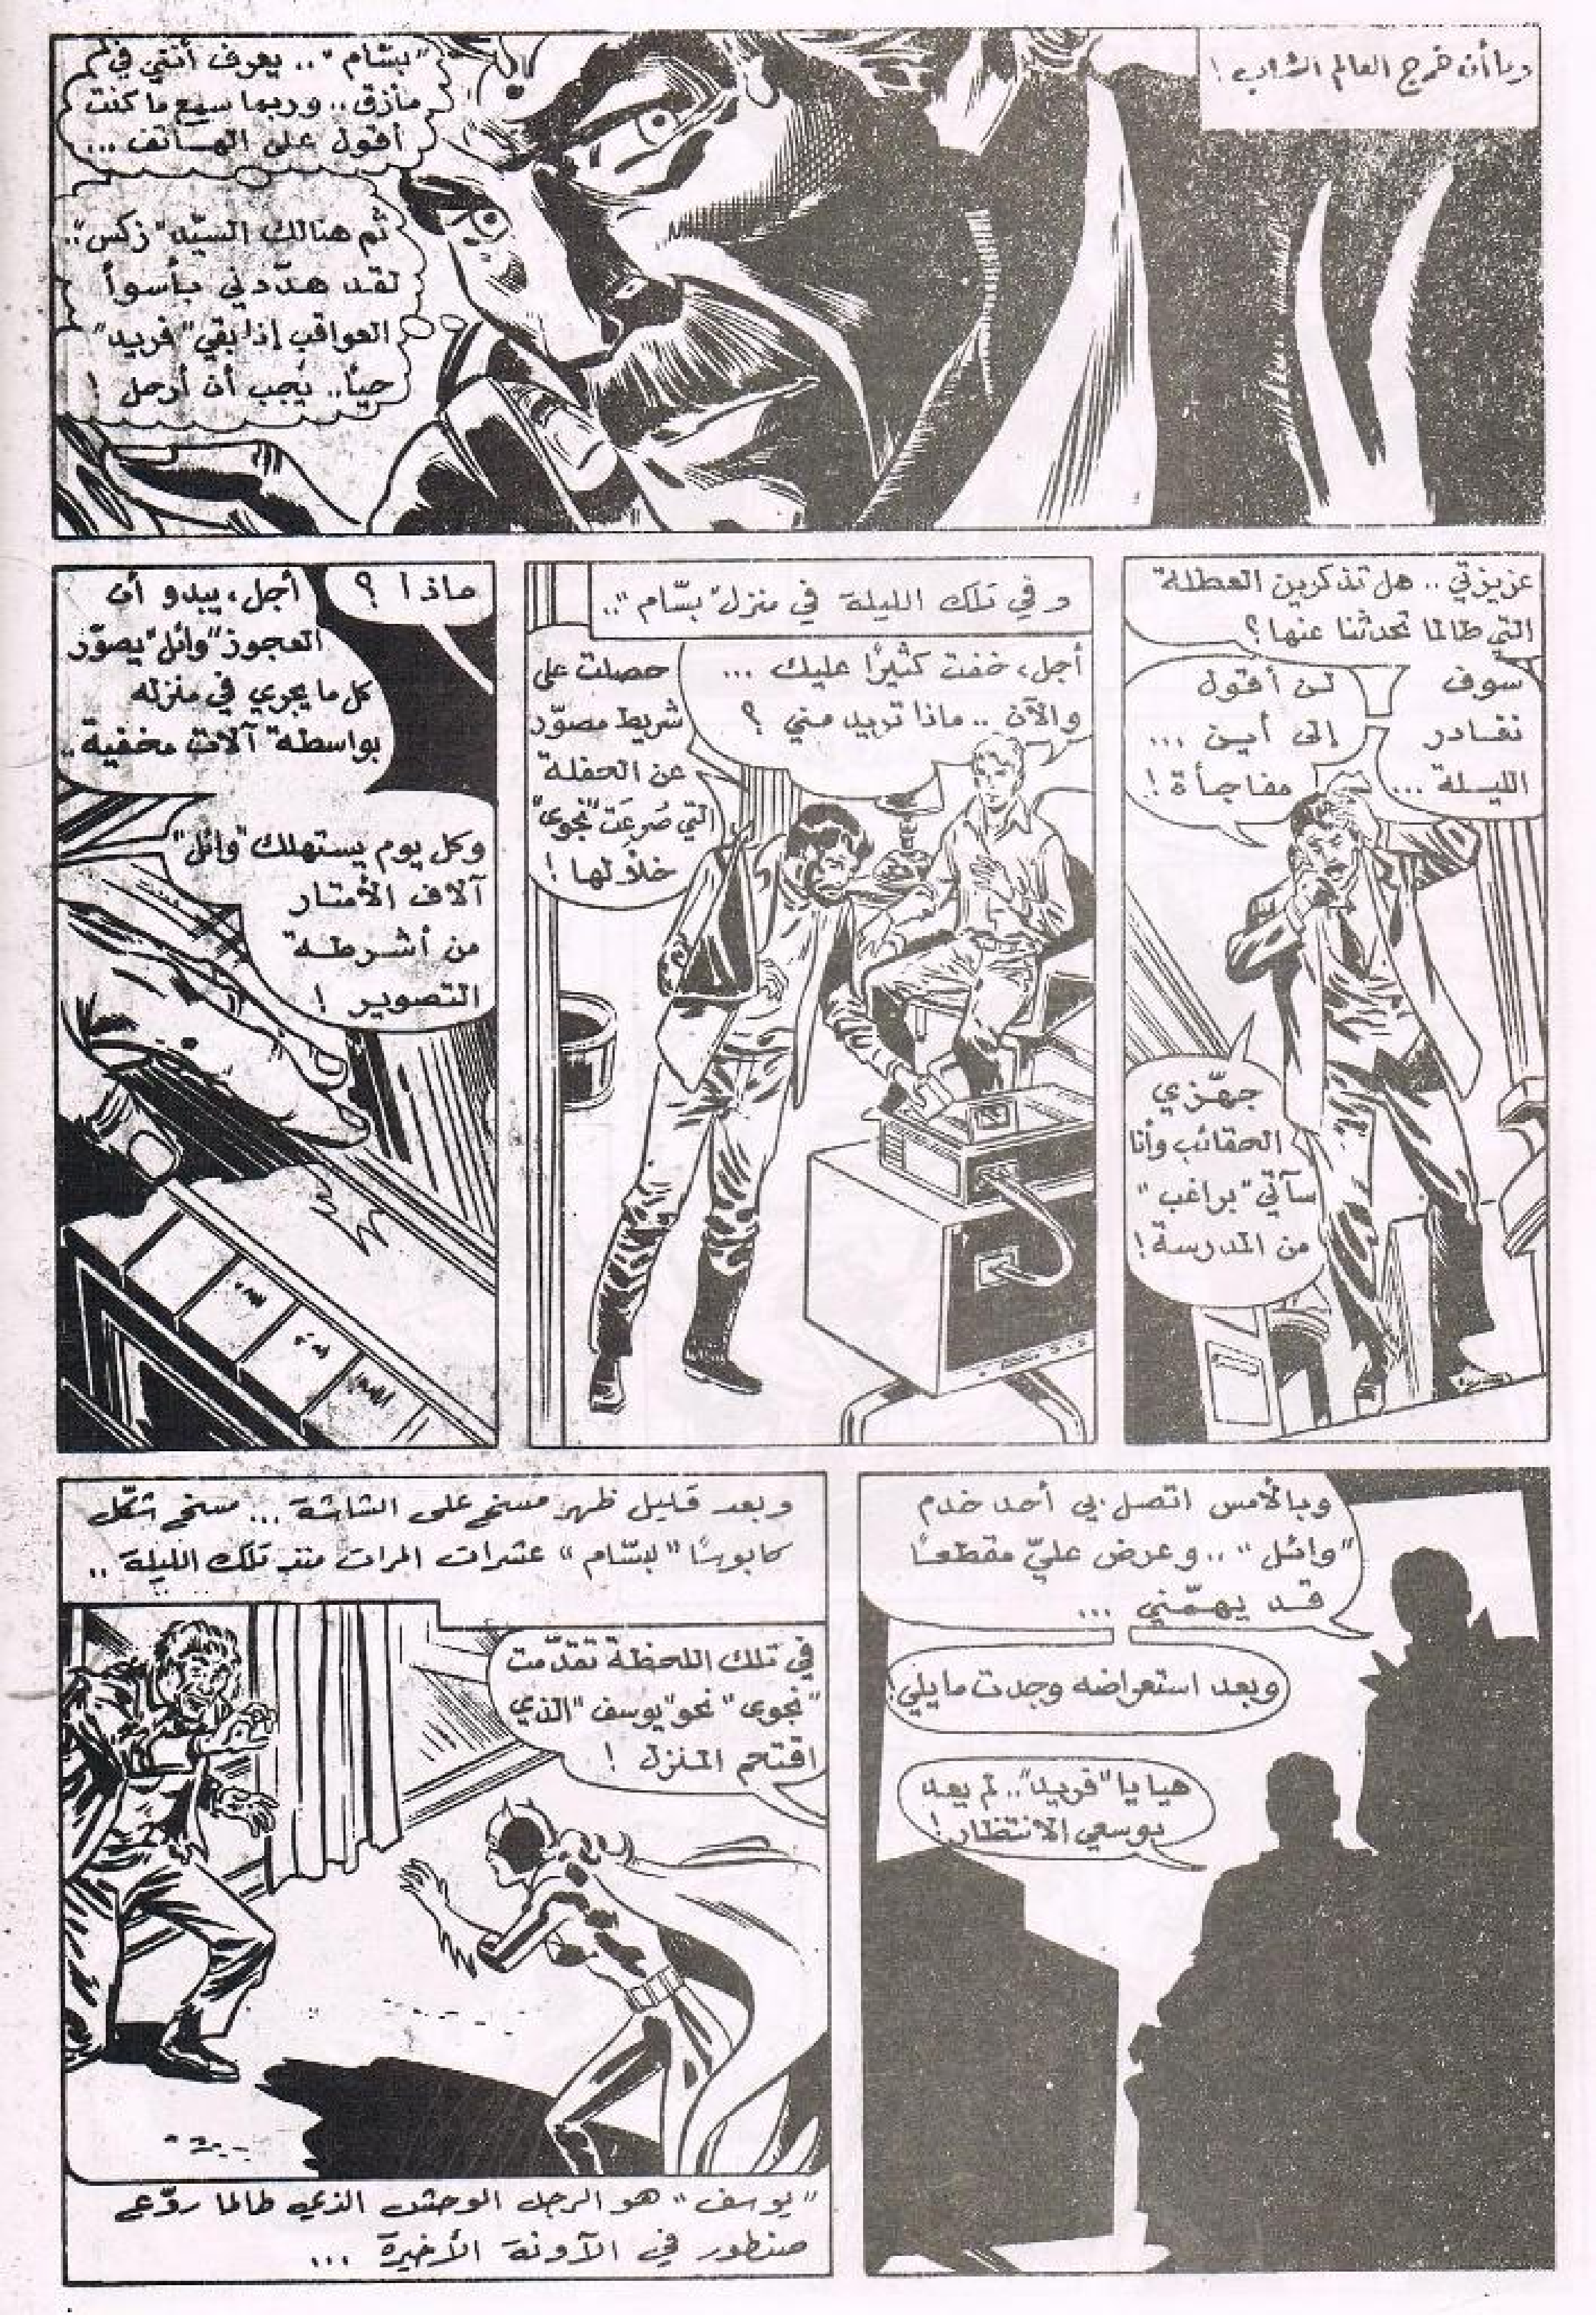 وما أن خرج العالم الشاب !
"بسّام" .. يعرف أنني في
مأزق .. وربما سمع ما كنت
أقول على الهاتف ...
ثم هنالك السيّد "زكس" ..
لقد هدّدني بأسوأ
العواقب إذا بقي "فريد"
حيّاً .. يجب أن أرحل !
عزيزتي .. هل تذكرين العطلة
التي طالما تحدثنا عنها ؟
سوف
نغادر
الليلة ...
لن أقول
إلى أين ...
مفاجأة !
جهّزي
الحقائب وأنا
سآتي "براغب"
من المدرسة !
وفي تلك الليلة في منزل "بسّام" ..
أجل، خفت كثيرًا عليك ...
والآن .. ماذا تريد مني ؟
حصلت على
شريط مصوّر
عن الحفلة
التي صُرِعَت "نجوى"
خلالها !
ماذا ؟
أجل، يبدو أن
العجوز "وائل" يصوّر
كل ما يجري في منزله
بواسطة آلات مخفية ..
وكل يوم يستهلك "وائل"
آلاف الأمتار
من أشرطة
التصوير !
وبالأمس اتصل بي أحد خدم
"وائل" .. وعرض عليّ مقطعاً
قد يهمّني ...
وبعد استعراضه وجدت ما يلي :
هيا يا "فريد" .. لم يعد
بوسعي الانتظار !
وبعد قليل ظهر مسخ على الشاشة ... مسخ شكّل
كابوسًا "لبسّام" عشرات المرات منذ تلك الليلة ..
في تلك اللحظة تقدّمت
"نجوى" نحو "يوسف" الذي
اقتحم المنزل !
"يوسف" هو الرجل الوحش الذي طالما روّع
صنطور في الآونة الأخيرة ...